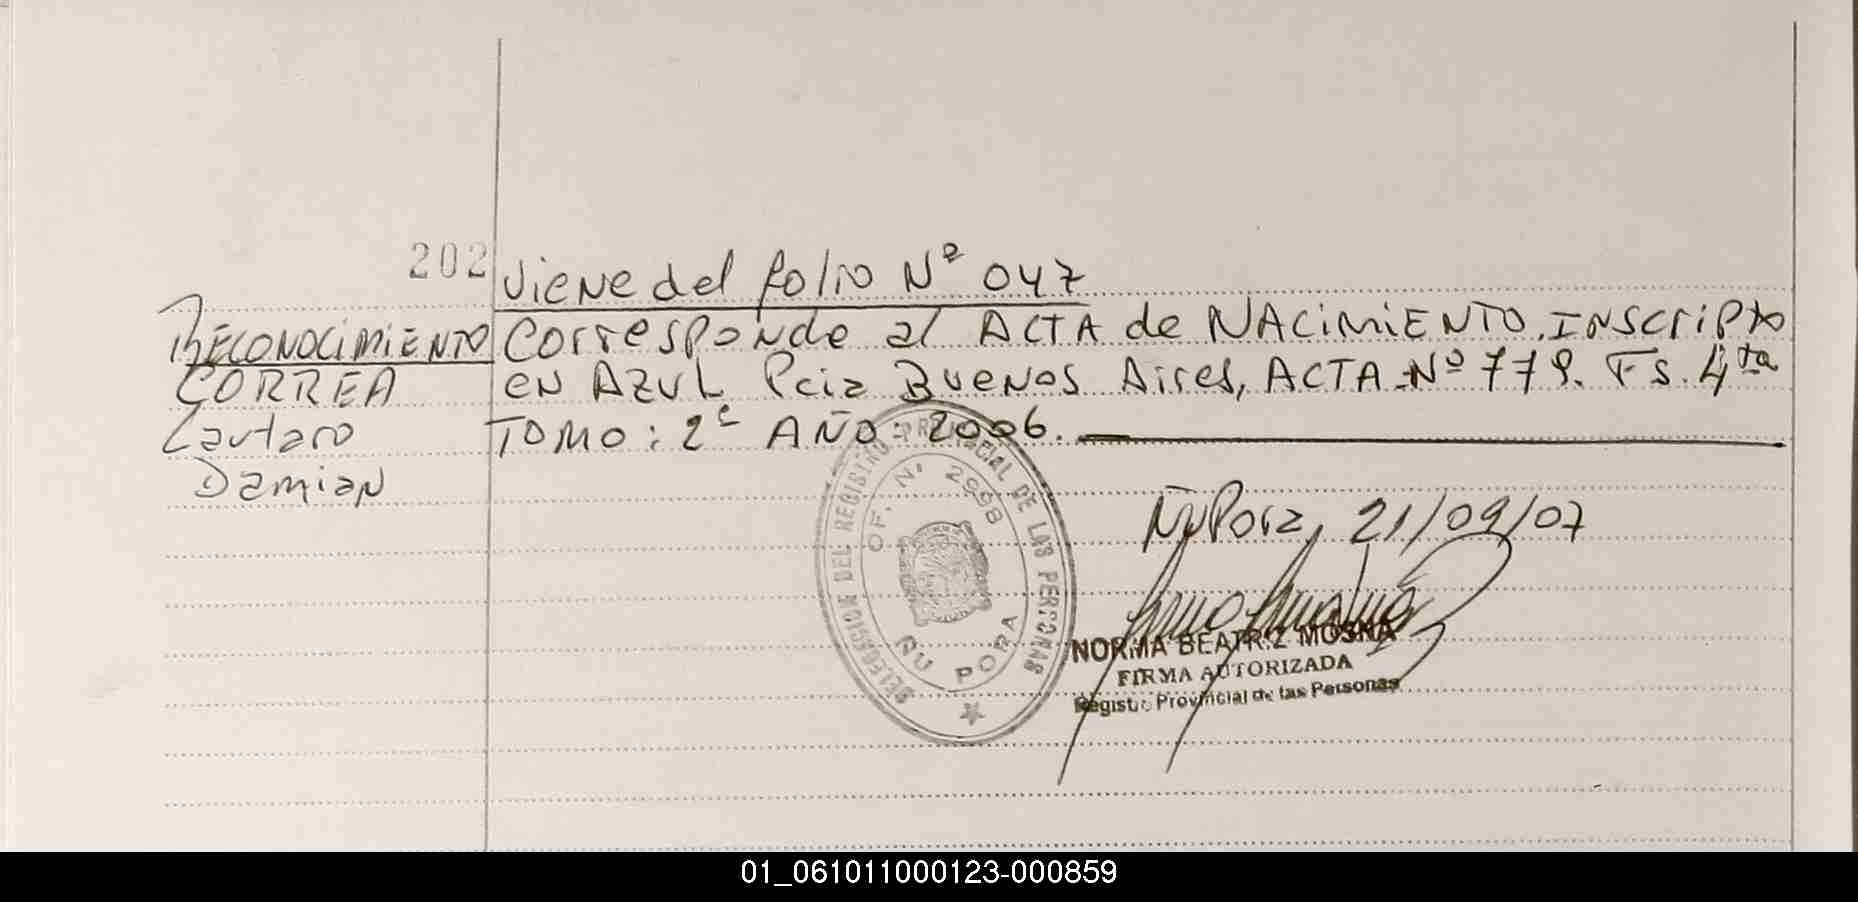 202
Viene del folio Nº 047
RECONOCIMIENTO Corresponde al ACTA de NACIMIENTO. INSCRIPTO
CORREA en AZUL Pcia Buenos Aires, ACTA Nº 779. Fs. 4ta
Lautaro TOMO: 2º AÑO: 2006.
Damian
Ñu Pora, 21/09/07
DELEGACION DEL REGISTRO PROVINCIAL DE LAS PERSONAS
OF. Nº 2998
ÑU PORA
NORMA BEATRIZ MOSNA
FIRMA AUTORIZADA
Registro Provincial de las Personas
01_061011000123-000859